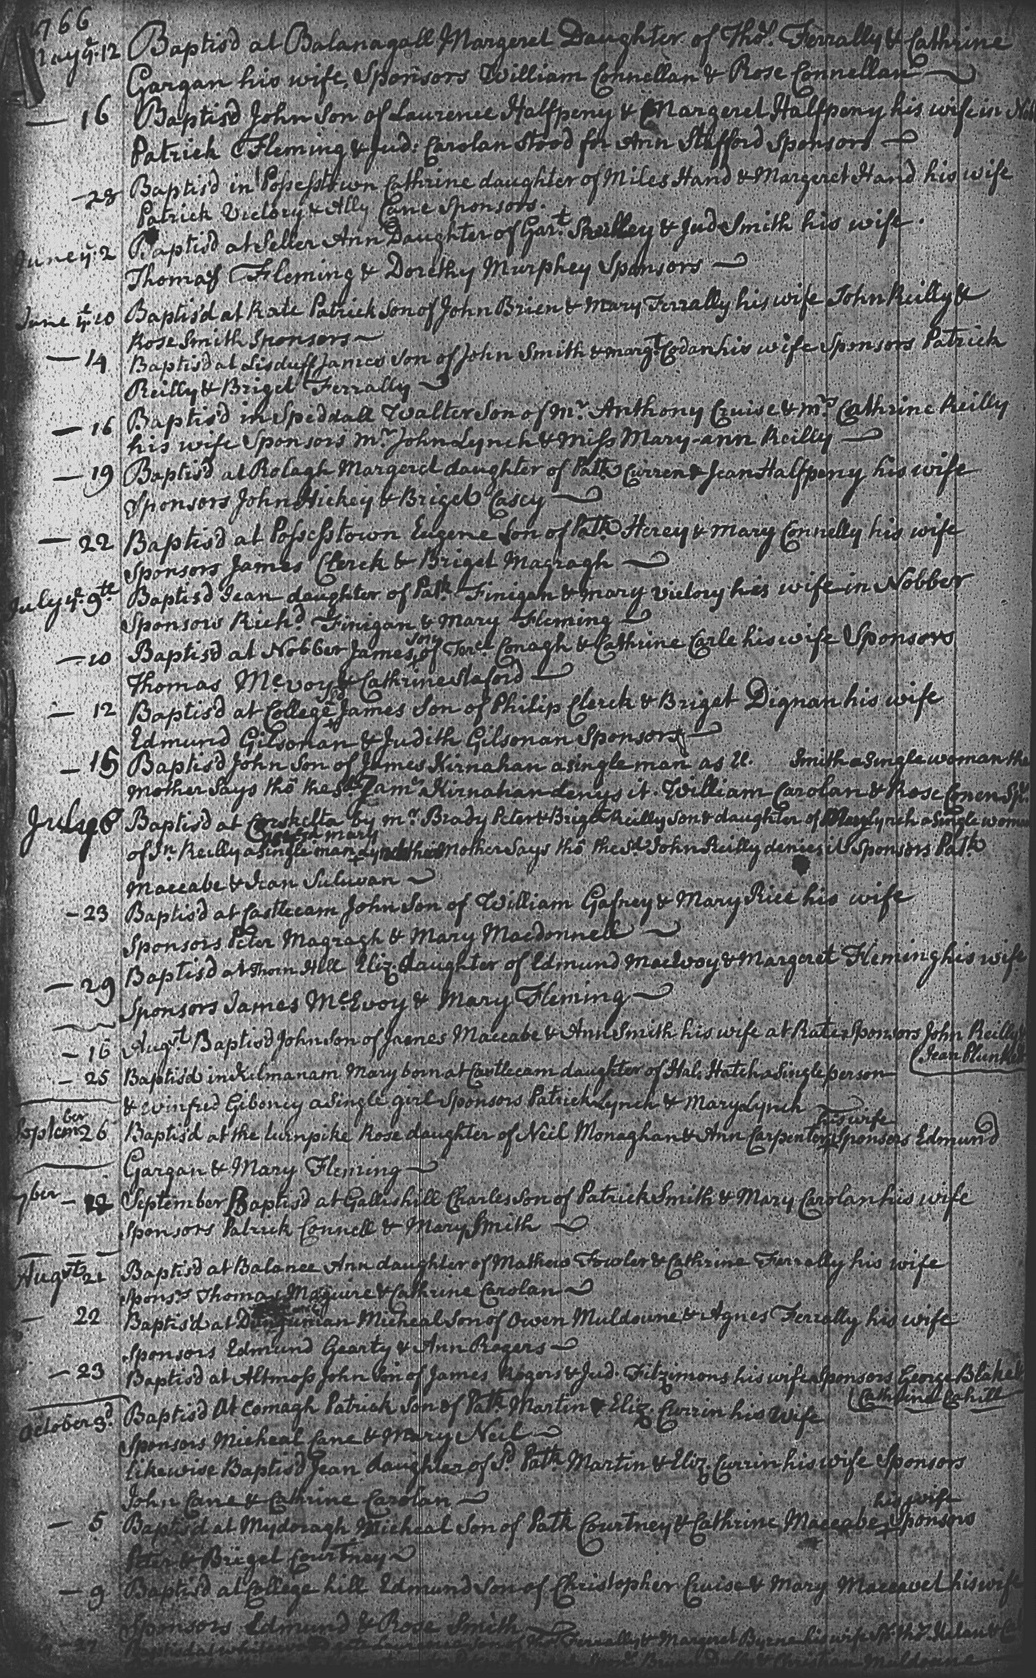 1766
May ye 12 Baptisd at Balanagall Margeret Daughter of Thos. Ferrally & Cathrine
Gargan his wife, Sponsors William Connellan & Rose Connellan
— 16 Baptisd John Son of Laurence Halfpeny & Margeret Halfpeny his wife in
Patrick Fleming & Jud: Carolan stood for Ann Stafford Sponsors
— 28 Baptisd in Possesstown Cathrine daughter of Miles Hand & Margeret Hand his wife
Patrick Victory & Ally Cane Sponsors.
June ye: 2 Baptisd at Seller Ann Daughter of Gart. Skelley & Jud Smith his wife.
Thomas Fleming & Dorethy Murphey Sponsors
June ye 10 Baptisd at Rate Patrick Son of John Brien & Mary Ferrally his wife John Reilly &
Rose Smith Sponsors
— 14 Baptisd at Lisduff James Son of John Smith & Margt Codan his wife Sponsors Patrick
Reilly & Briget Ferrally
— 16 Baptisd in Speddall Walter Son of Mr. Anthony Cruise & Mrs Cathrine Reilly
his wife Sponsors Mr. John Lynch & Miss Mary-ann Reilly
— 19 Baptisd at Rolagh Margeret daughter of Patk Curren & Jean Halfpeny his wife
Sponsors John Hickey & Briget Casey
— 22 Baptisd at Possesstown Eugene Son of Patk Herey & Mary Connelly his wife
Sponsors James Clerck & Briget Magragh
July ye 9th Baptisd Jean daughter of Patk Finigan & Mary Victory his wife in Nobber
Sponsors Richd. Finigan & Mary Fleming
— 10 Baptisd at Nobber James Son of Terce Conagh & Cathrine Carle his wife Sponsors
Thomas McEvoy & Cathrine Staford
— 12 Baptisd at College James Son of Philip Clerck & Briget Dignan his wife
Edmund Gilsonan & Judith Gilsonan Sponsors
— 15 Baptisd John Son of James Kirnahan a single man as Smith a single woman the
Mother Says tho the sd Jams Kirnahan denys it. William Carolan & Rose Conen
July 18 Baptisd at by Mr. Brady Peter & Briget Reilly Son & daughter of Mary Lynch a single woman
of Jn Reilly a single man Mother Says tho the sd John Reilly denies it Sponsors Patk
Maccabe & Jean Suluvan
— 23 Baptisd at Castlecam John Son of William Gafney & Mary Rice his wife
Sponsors Peter Magragh & Mary Macdonnell
— 29 Baptisd at Thorn Hill Eliz. daughter of Edmund MacEvoy & Margeret Fleming his wife
Sponsors James McEvoy & Mary Fleming
— 16 Augst Baptisd John Son of James Maccabe & Ann Smith his wife at Rate Sponsors John Reilly
Jean Plunket
— 25 Baptisd in Kilmanam Mary born at Castlecam daughter of Hal: Hatch a single person
& Winifred Giboney a single girl Sponsors Patrick Lynch & Mary Lynch
his wife
September 26 Baptisd at the turnpike Rose daughter of Neil Monaghan & Ann Carpenter Sponsors Edmund
Gargan & Mary Fleming
7ber — 12 September Baptisd at Gallishill Charles Son of Patrick Smith & Mary Carolan his wife
Sponsors Patrick Connell & Mary Smith
Augst 21 Baptisd at Balanee Ann daughter of Mathew Fowler & Cathrine Ferrally his wife
Sponsrs Thomas Maguire & Cathrine Carolan
— 22 Baptisd at Micheal Son of Owen Muldowne & Agnes Ferrally his wife
Sponsors Edmund Gearty & Ann Rogers
— 23 Baptisd at Altmoss John Son of James Rogers & Jud. Fitzimons his wife Sponsors George Blake
Cathrine Cahill
October 3d. Baptisd at Comagh Patrick Son of Patk Martin & Eliz. Currin his Wife
Sponsors Micheal Cane & Mary Neil
likewise Baptisd Jean daughter of Sd. Patk Martin & Eliz. Currin his wife Sponsors
John Cane & Cathrine Carolan
his wife
— 5 Baptisd at Mydoragh Micheal Son of Patk Courtney & Cathrine Maccabe Sponsors
Peter & Briget Courtney
— 9 Baptisd at College hill Edmund Son of Christopher Cruise & Mary Maccavel his wife
Sponsors Edmund & Rose Smith
— 27 Baptisd at Son of Thos Ferrally & Margeret Byrne his wife
Muldowne